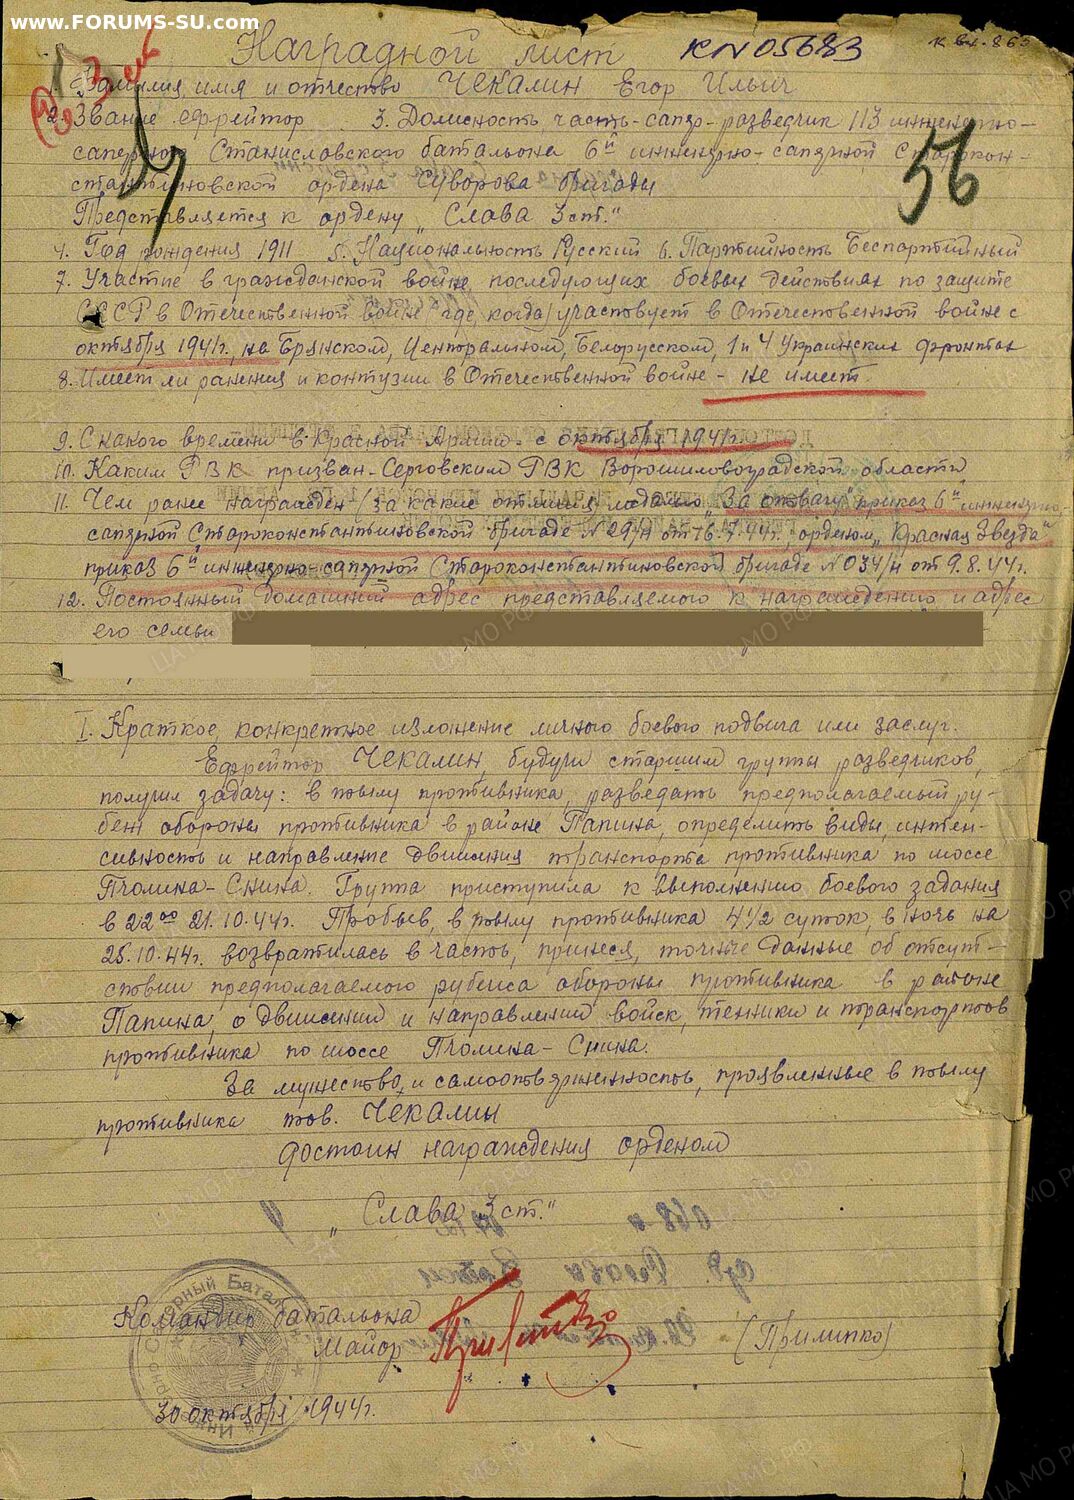 www.FORUMS-SU.com
Наградной лист к№05683 к вх. 863
1. Фамилия, имя и отчество ЧЕКАЛИН Егор Ильич
2. Звание ефрейтор 3. Должность, часть - сапер-разведчик 113 инженерно-
саперного Станиславского батальона 6й инженерно-саперной Старокон-
стантиновской ордена Суворова бригады
56
Представляется к ордену „Слава 3 ст."
4. Год рождения 1911 5. Национальность Русский 6. Партийность Беспартийный
7. Участие в гражданской войне, последующих боевых действиях по защите
СССР в Отечественной войне (где, когда) участвует в Отечественной войне с
октября 1941г., на Брянском, Центральном, Белорусском, 1 и 4 Украинских фронтах
8. Имеет ли ранения и контузии в Отечественной войне - не имеет.
9. С какого времени в Красной Армии - с октября 1941г.
10. Каким РВК призван - Серговским РВК Ворошиловоградской области
11. Чем ранее награжден (за какие отличия) медалью „За отвагу" приказ 6й инженерно-
саперной Староконстантиновской бригаде №29/н от 16.7.44г., орденом „Красная Звезда"
приказ 6й инженерно-саперной Староконстантиновской бригаде №034/н от 9.8.44г.
12. Постоянный домашний адрес представляемого к награждению и адрес
его семьи
I. Краткое, конкретное изложение личного боевого подвига или заслуг.
Ефрейтор ЧЕКАЛИН, будучи старшим группы разведчиков,
получил задачу: в тылу противника, разведать предполагаемый ру-
беж обороны противника в районе Папина, определить виды, интен-
сивность и направление движения транспорта противника по шоссе
Пчолина-Снина. Группа приступила к выполнению боевого задания
в 22 00 21.10.44г. Пробыв, в тылу противника 4 1/2 суток, в ночь на
25.10.44г. возвратилась в часть, принеся, точные данные об отсут-
ствии предполагаемого рубежа обороны противника в районе
Папина, о движении и направлении войск, техники и транспортов
противника по шоссе Пчолина-Снина.
За мужество, и самоотверженность, проявленные в тылу
противника тов. ЧЕКАЛИН
достоин награждения орденом
„Слава 3 ст."
Командир батальона
Майор (Прилипко)
30 октября 1944г.